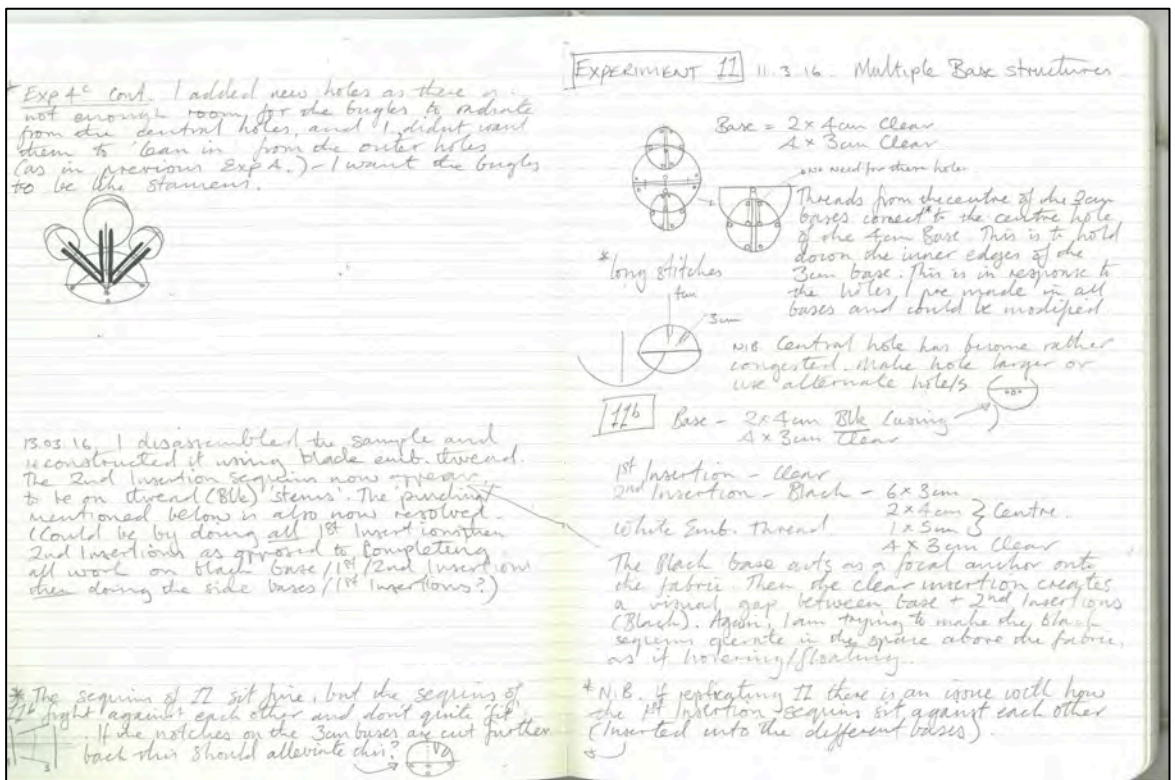 * Exp 4c cont. I added new holes as there is
not enough room for the bugles to radiate
from the central holes, and I didnt want
them to 'lean in' from the outer holes
(as in previous Exp 4.) - I want the bugles
to be like stamens.
13.03.16. I disassembled the sample and
reconstructed it using black emb. thread.
The 2nd Insertion sequins now appear
to be on thread (Blk) 'stems'. The 'pinching'
mentioned below is also now resolved.
(Could be by doing all 1st Insertions then
2nd Insertions as opposed to completing
all work on black base/1st/2nd Insertions
then doing the side bases/1st Insertions?)
* The sequins of 11 sit fine, but the sequins of
11b fight against each other and don't quite 'fit'.
If the notches on the 3cm bases are cut further
back this should alleviate this?
EXPERIMENT 11 11.3.16. Multiple Base structures
Base = 2 x 4cm Clear
4 x 3cm Clear
No need for these holes
Threads from the centre of the 3cm
bases connect* to the centre hole
of the 4cm Base. This is to hold
down the inner edges of the
3cm base. This is in response to
the holes I've made in all
bases and could be modified
* long stitches
4cm
3cm
N.B. Central hole has become rather
congested. Make hole larger or
use alternate hole/s
11b Base - 2 x 4cm Blk (using )
4 x 3cm Clear
1st Insertion - Clear
2nd Insertion - Black - 6 x 3cm
2 x 4cm } Centre.
White Emb. Thread 1 x 5cm }
4 x 3cm Clear
The Black base acts as a focal anchor onto
the fabric. Then the clear insertion creates
a visual gap between base + 2nd Insertions
(Black). Again, I am trying to make the black
sequins operate in the space above the fabric,
as if hovering/floating.
* N.B. If replicating 11 there is an issue with how
the 1st Insertion sequins sit against each other
(Inserted into the different bases).